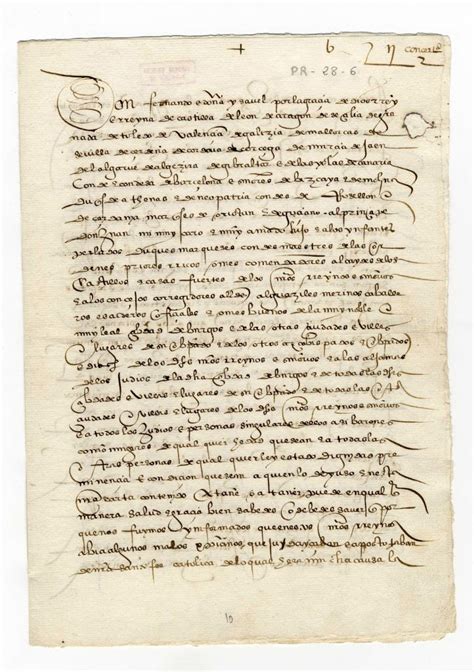 +
6
PR - 28 - 6
2
Don fernando e doña ysavel por la graçia de dios rrey
e rreyna de castilla de leon de aragon de seçilia de gra
nada de toledo de valençia de galizia de mallorcas de
sevilla de çerdeña de cordova de corçega de murçia de jaen
del algarve de algezira de gibraltar e de las yslas de canaria
conde e condesa de barçelona e señores de vizcaya e de molina
duques de athenas e de neopatria condes de rrosellon
e de çerdania marqueses de oristan e de goçiano al prinçipe
don juan mi muy caro e muy amado hijo e a los ynfantes
perlados duques marqueses condes maestres de las or
denes priores rricos omes comendadores alcaydes de los
castillos e casas fuertes de los nros rreynos e señorios
e a los conçejos corregidores alldes alguaziles merinos cavalle
ros escuderos ofiçiales e omes buenos de la muy noble e
muy leal çibdad de burgos e de las otras çiudades e villas
e lugares de su obpado e de los otros arçobpados e obpados
e dioç de los dhos nros rreynos e señorios e a las aljamas
de los judios de la dha çibdad de burgos e de todas las dhas
çibdades e villas e lugares de su obpado e de todas las
çibdades e villas e lugares de los dhos nros rreynos e señorios
e a todos los judios e personas singulares dellos asi barones
como mugeres de qualquier hedad que sean e a todas las
otras personas de qualquier ley estado dignidad pre
minençia e condiçion que sean a quien lo de yuso en esta
nra carta contenido atañe o atañer puede en qual
manera salud e graçia bien sabedes o devedes saber que
porque nos fuymos ynformados que en estos nros rreynos
abia algunos malos xpianos que judayzaban e apostataban
de nra santa fee catolica de lo qual hera mucha causa la
10